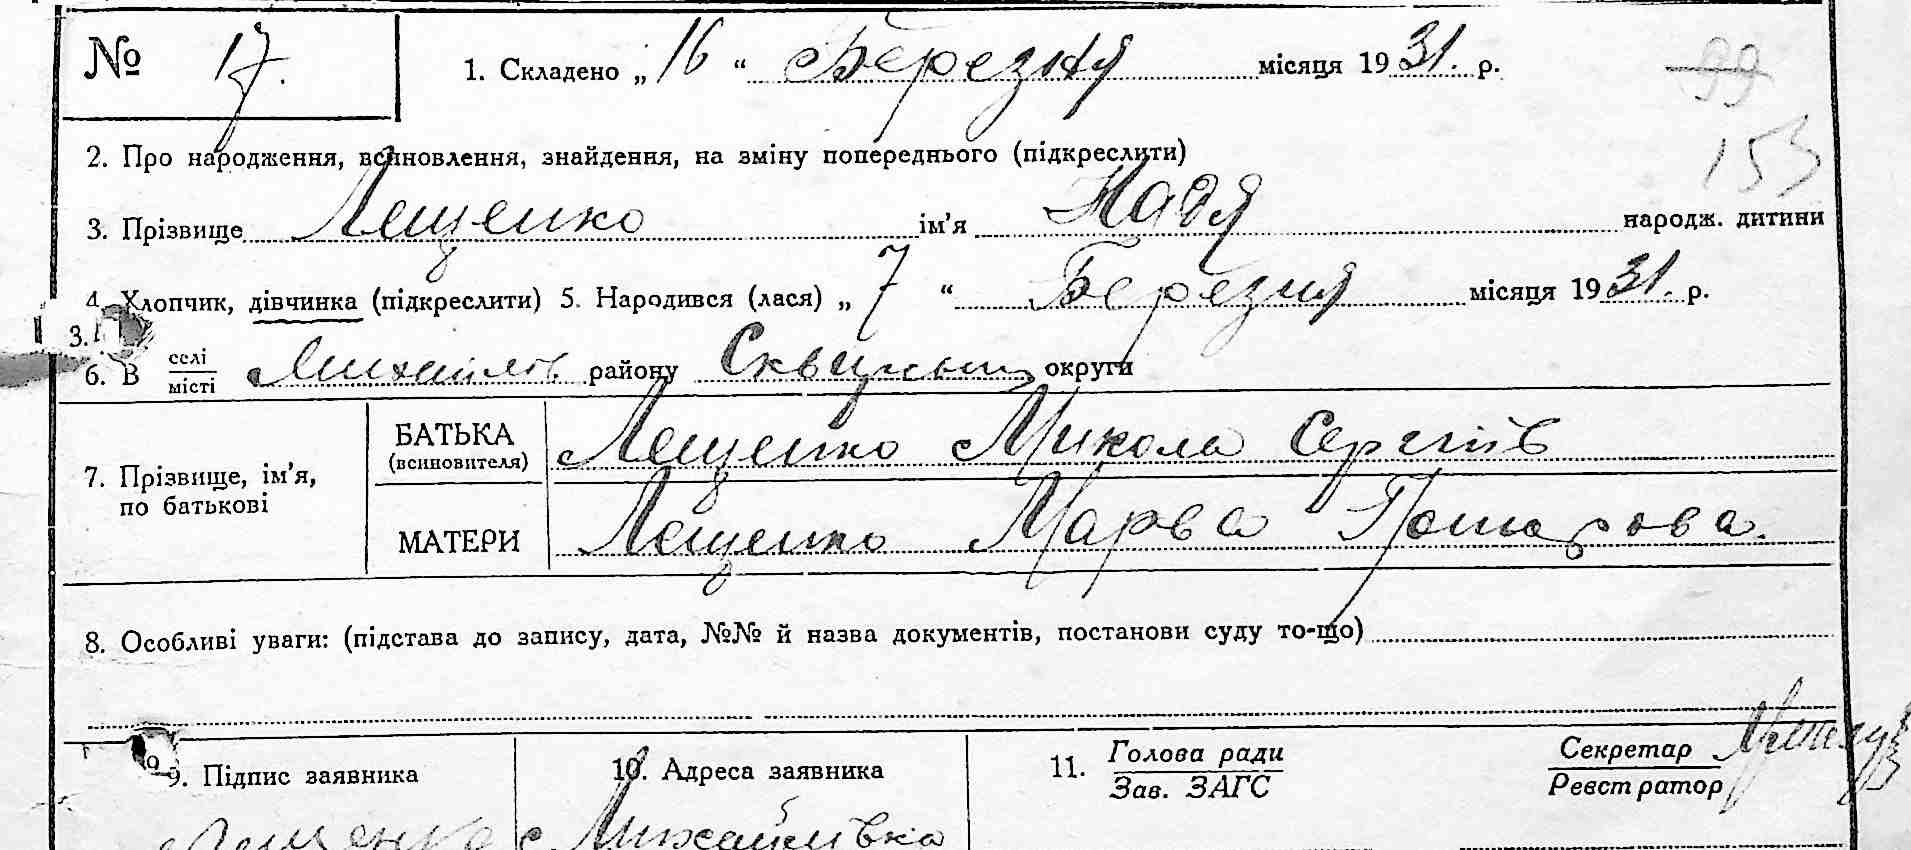 № 17. 1. Складено „ 16 “ Березня місяця 1931. р.
99
153
2. Про народження, всиновлення, знайдення, на зміну попереднього (підкреслити)
3. Прізвище Лещенко ім’я Надя народж. дитини
4. Хлопчик, дівчинка (підкреслити) 5. Народився (лася) „ 7 “ Березня місяця 1931. р.
3.
6. В селі місті Михайлів. району Сквирський округи
7. Прізвище, ім’я, по батькові
БАТЬКА (всиновителя) Лещенко Микола Сергіїв
МАТЕРИ Лещенко Марва
8. Особливі уваги: (підстава до запису, дата, №№ й назва документів, постанови суду то-що)
9. Підпис заявника 10. Адреса заявника 11. Голова ради Зав. ЗАГС Секретар Реєстратор
Лещенко с Михайлівка